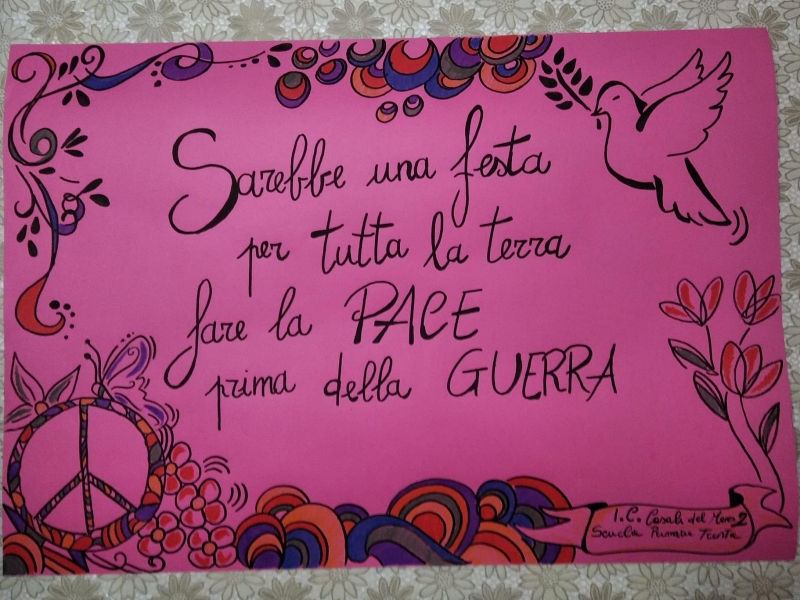 Sarebbe una festa
per tutta la terra
fare la PACE
prima della GUERRA
I.C. Casali del Manco 2
Scuola Primaria